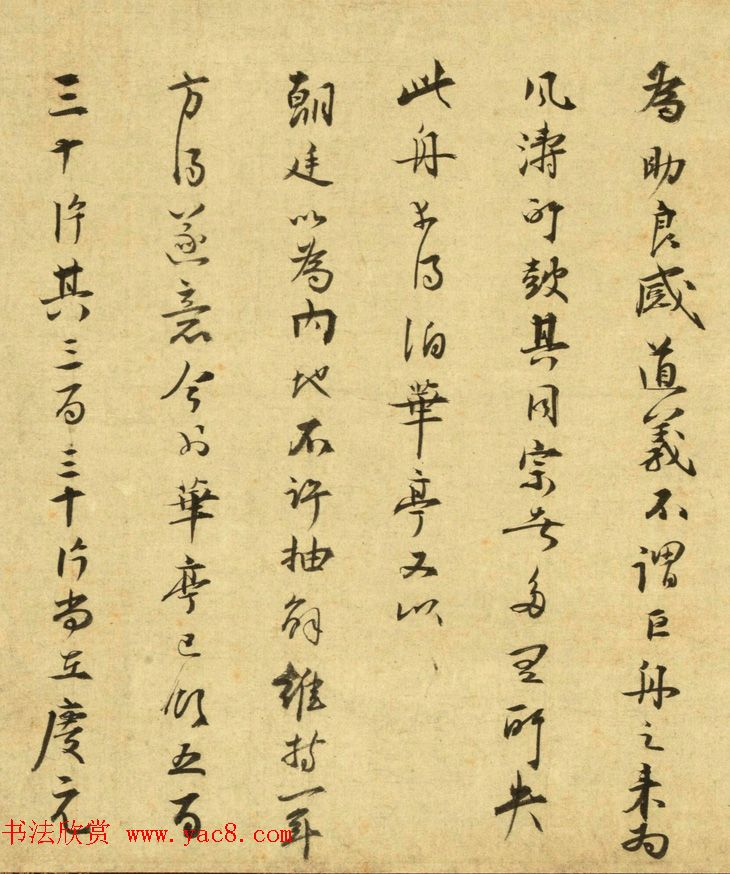 為助良感道義不謂巨舟之來為
風濤所鼓其同宗者多異所失
此舟幸得泊華亭又以
朝廷以為內地不許抽解維持一年
方得遂意今於華亭已領五百
三十片其三百三十片尚在慶元
书法欣赏 www.yac8.com